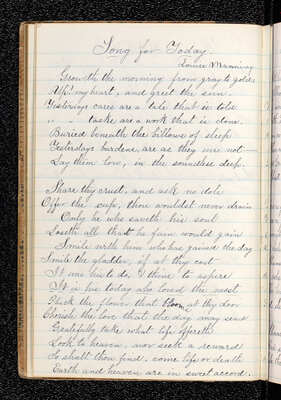 Song for Today.
Louise Manning
Groweth the morning from gray to gold;
Up! my heart, and greet the sun.
Yesterdays cares are a tale that is told
" " tasks are a work that is done.
Buried beneath the billows of sleep
Yesterdays burdens, are as they were not
Lay them low, in the soundless deep.
Share thy crust, and ask no dole
Offer the cup, thou wouldst never drain
Only he who saveth his soul
Loseth all that he fain would gain
Smile with him who has gained the day
Smile the gladder, if at thy cost
It was his to do, & thine to aspire
It is his today who loved the most
Pluck the flower that blooms at thy door
Cherish the love that the day may send
Gratefully take what life offereth
Look to heaven, nor seek a reward
So shalt thou find, come life or death
Earth and heaven are in sweet accord.